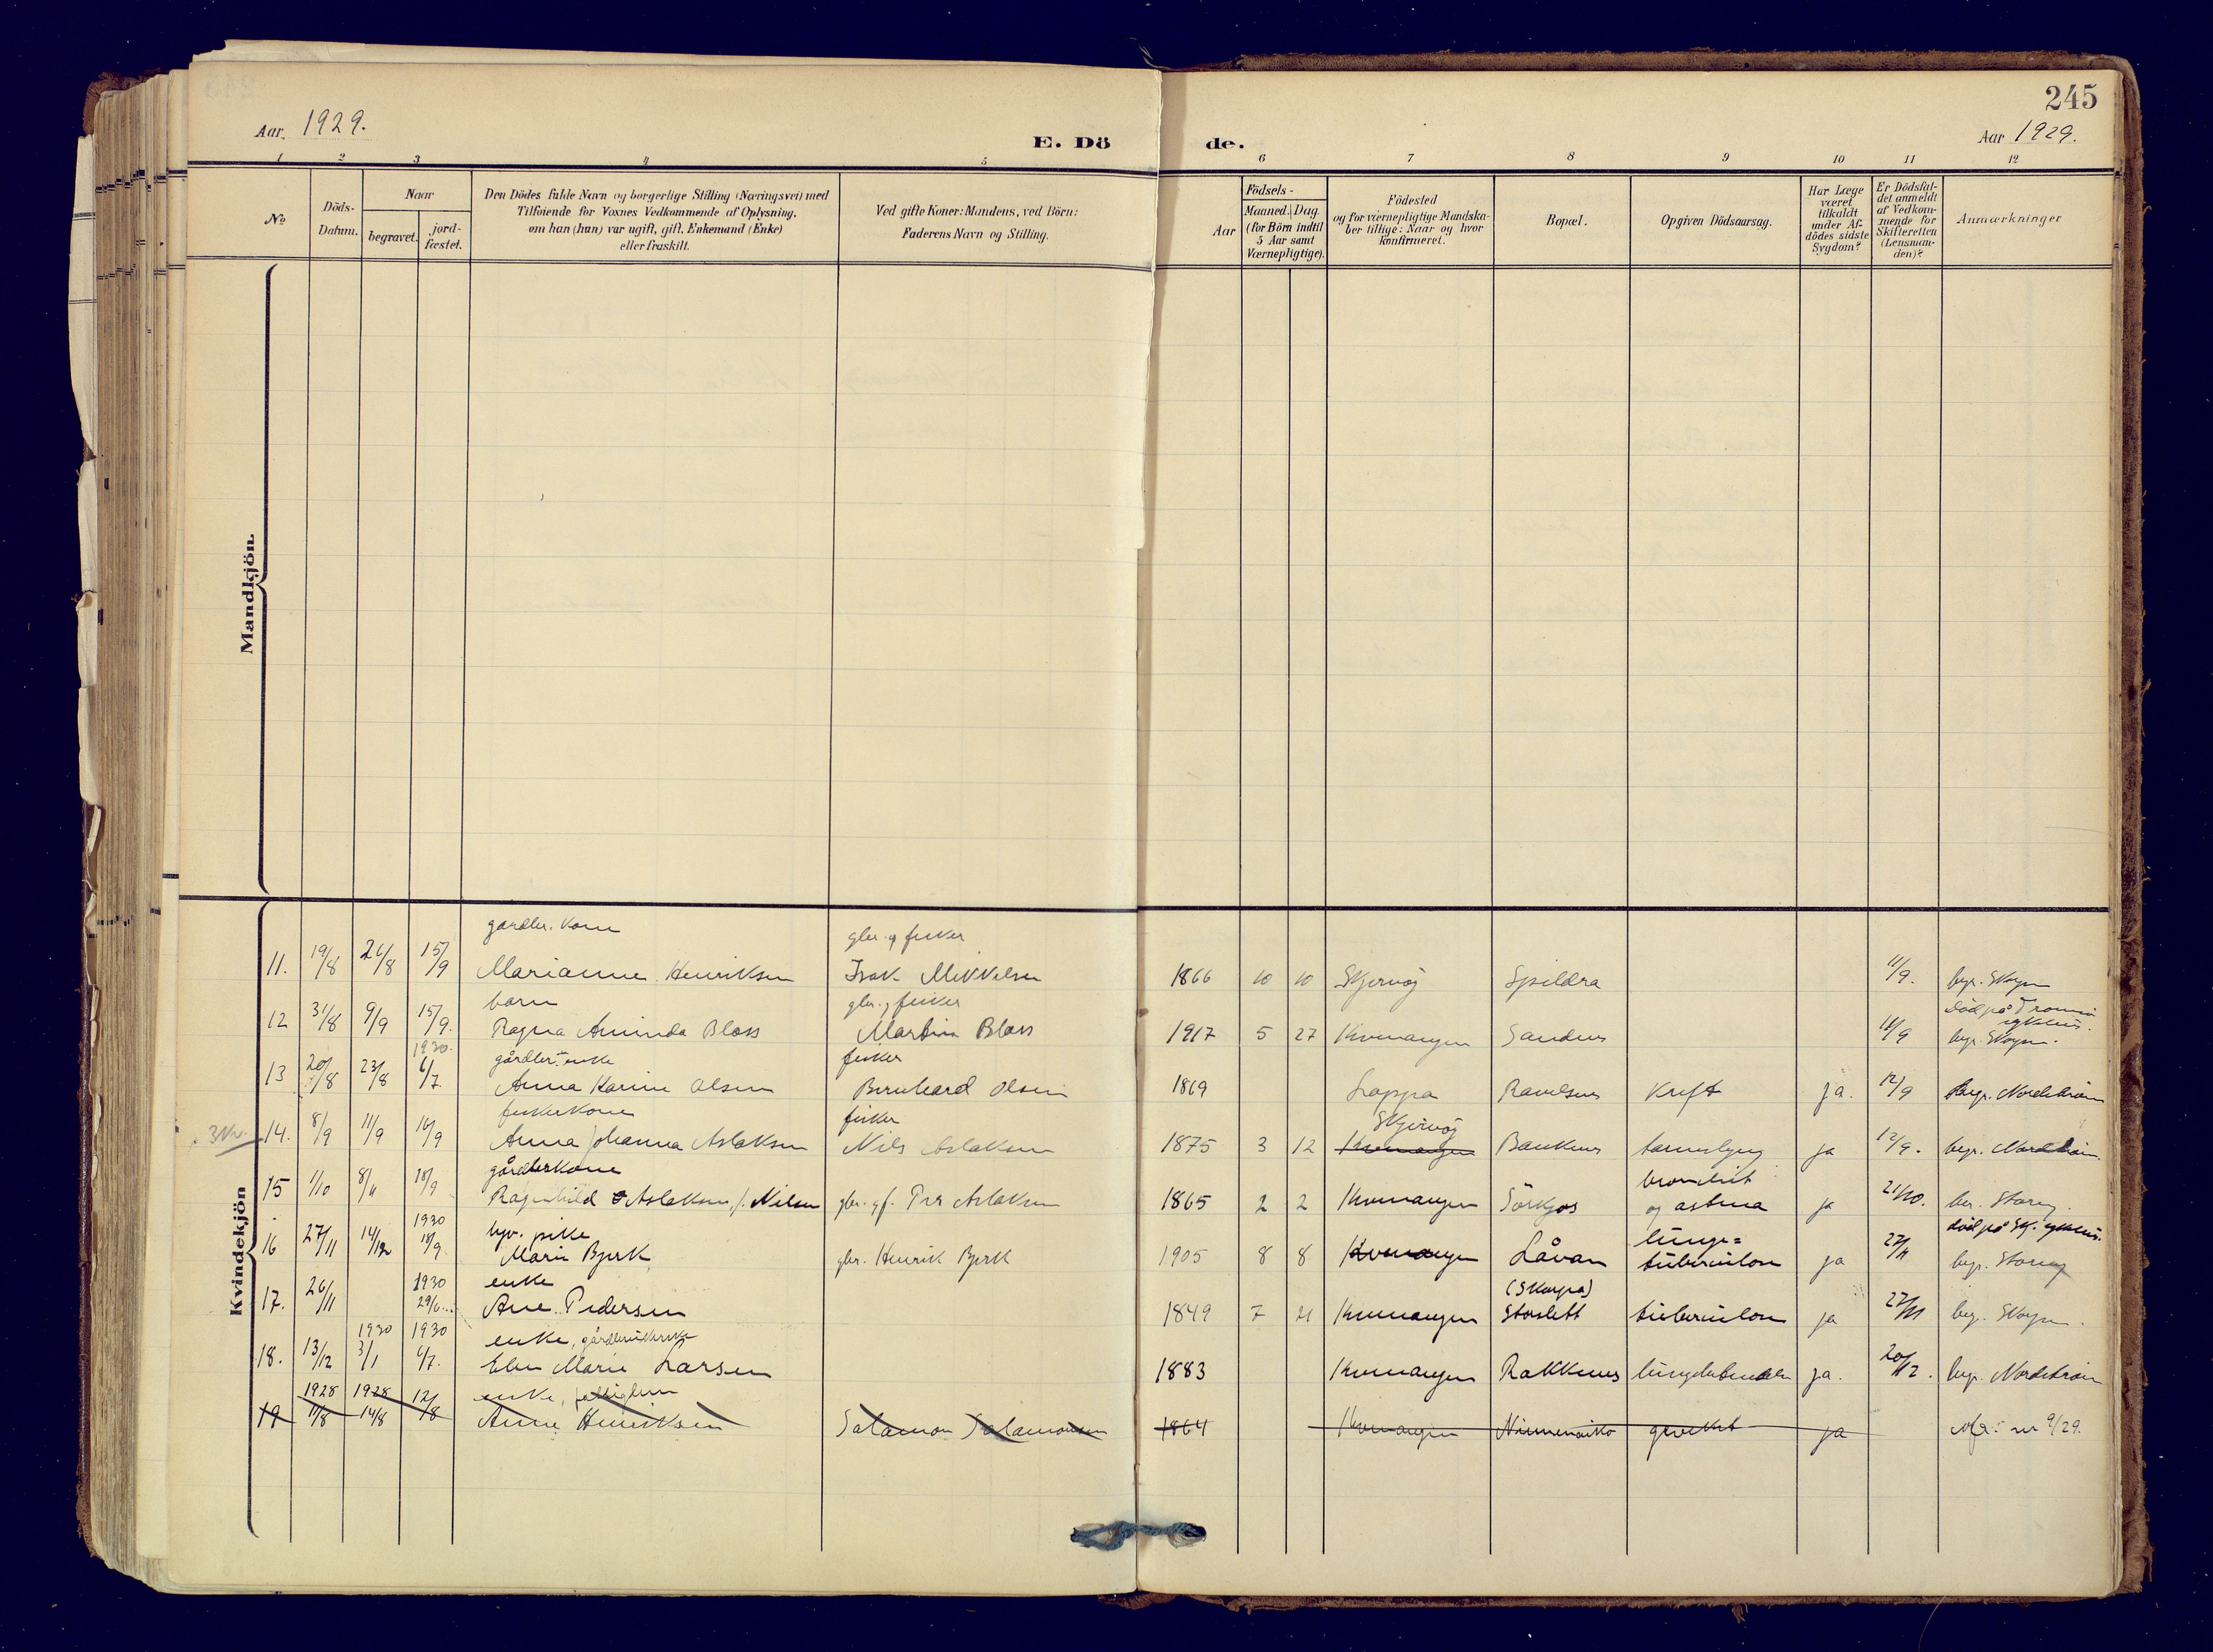 245
Aar. 1929.
E. Dö de.
Aar 1929.
1 2 3 4 5 6 7 8 9 10 11 12
No
Döds-
Datum.
Naar
begravet.
jord-
fæstet.
Den Dödes fulde Navn og borgerlige Stilling (Næringsvei) med
Tilföiende for Voxnes Vedkommende af Oplysning,
om han (hun) var ugift, gift, Enkemand (Enke)
eller fraskilt.
Ved gifte Koner: Mandens, ved Börn:
Faderens Navn og Stilling.
Födsels-
Aar
Maaned. Dag.
(for Börn indtil
5 Aar samt
Værnepligtige).
Födested
og for værnepligtige Mandska-
ber tillige: Naar og hvor
konfirmeret.
Bopæl.
Opgiven Dödsaarsag.
Har Læge
været
tilkaldt
under Af-
dödes sidste
Sygdom?
Er Dödsfal-
det anmeldt
af Vedkom-
mende for
Skifteretten
(Lensman-
den)?
Anmærkninger
Mandkjön.
Kvindekjön
gårdbr. kone gbr. og fisker
11. 19/8 26/8 15/9 Marianne Henriksen Isak Mikkelsen 1866 10 10 Skjervøy Spildra 11/9. begr. Skogn
barn gbr. og fisker död på Tromsö sykehus.
12 31/8 9/9 15/9. Ragna Aminda Blass Martin Blass 1917 5 27 Kvænangen Sandnes 11/9 begr. Skogn.
1930. gårdbr. enke fisker
13 20/8 23/8 6/7 Anna Karine Olsen Bernhard Olsen 1869 Loppa Ravelsnes Kreft ja. 12/9 begr. Nordstraum
fiskerkone fisker Skjervøy
3 Kr. 14. 8/9 11/9 16/9 Anna Johanna Aslaksen Nils Aslaksen 1875 3 12 Kvænangen Bankenes ja 12/9. begr. Nordstraum.
gårdbrkone bronchit
15 1/10 8/11 18/9 Ragnhild Aslaksen, f. Nilsen gbr. gf. Per Aslaksen 1865 2 2 Kvænangen Sörkjos og astma ja 21/10. begr. Storeng.
1930 pike lunge= död på Skj. sykehus.
16 27/11 14/12 18/9. Marie Bjerk gbr. Henrik Bjerk 1905 8 8 Kvænangen Låvan tuberculose ja 27/11 begr. Storeng
1930 enke (Skorpa)
17. 26/11 29/6 Ane Pedersen 1849 7 21 Kvænangen Storslett tuberculose ja 27/11 beg. Skogn.
1930 1930 enke, gårdbrukerske
18. 13/12 3/1 6/7. Elen Marie Larsen 1883 Kvænangen Rakkenes ja. 20/12. begr. Nordstraum
1928 1928 enke, fattiglem
19 11/8 14/8 12/8 Anne Henriksen Salamon Salamonsen 1864 Kvænangen ja nr 9/29.